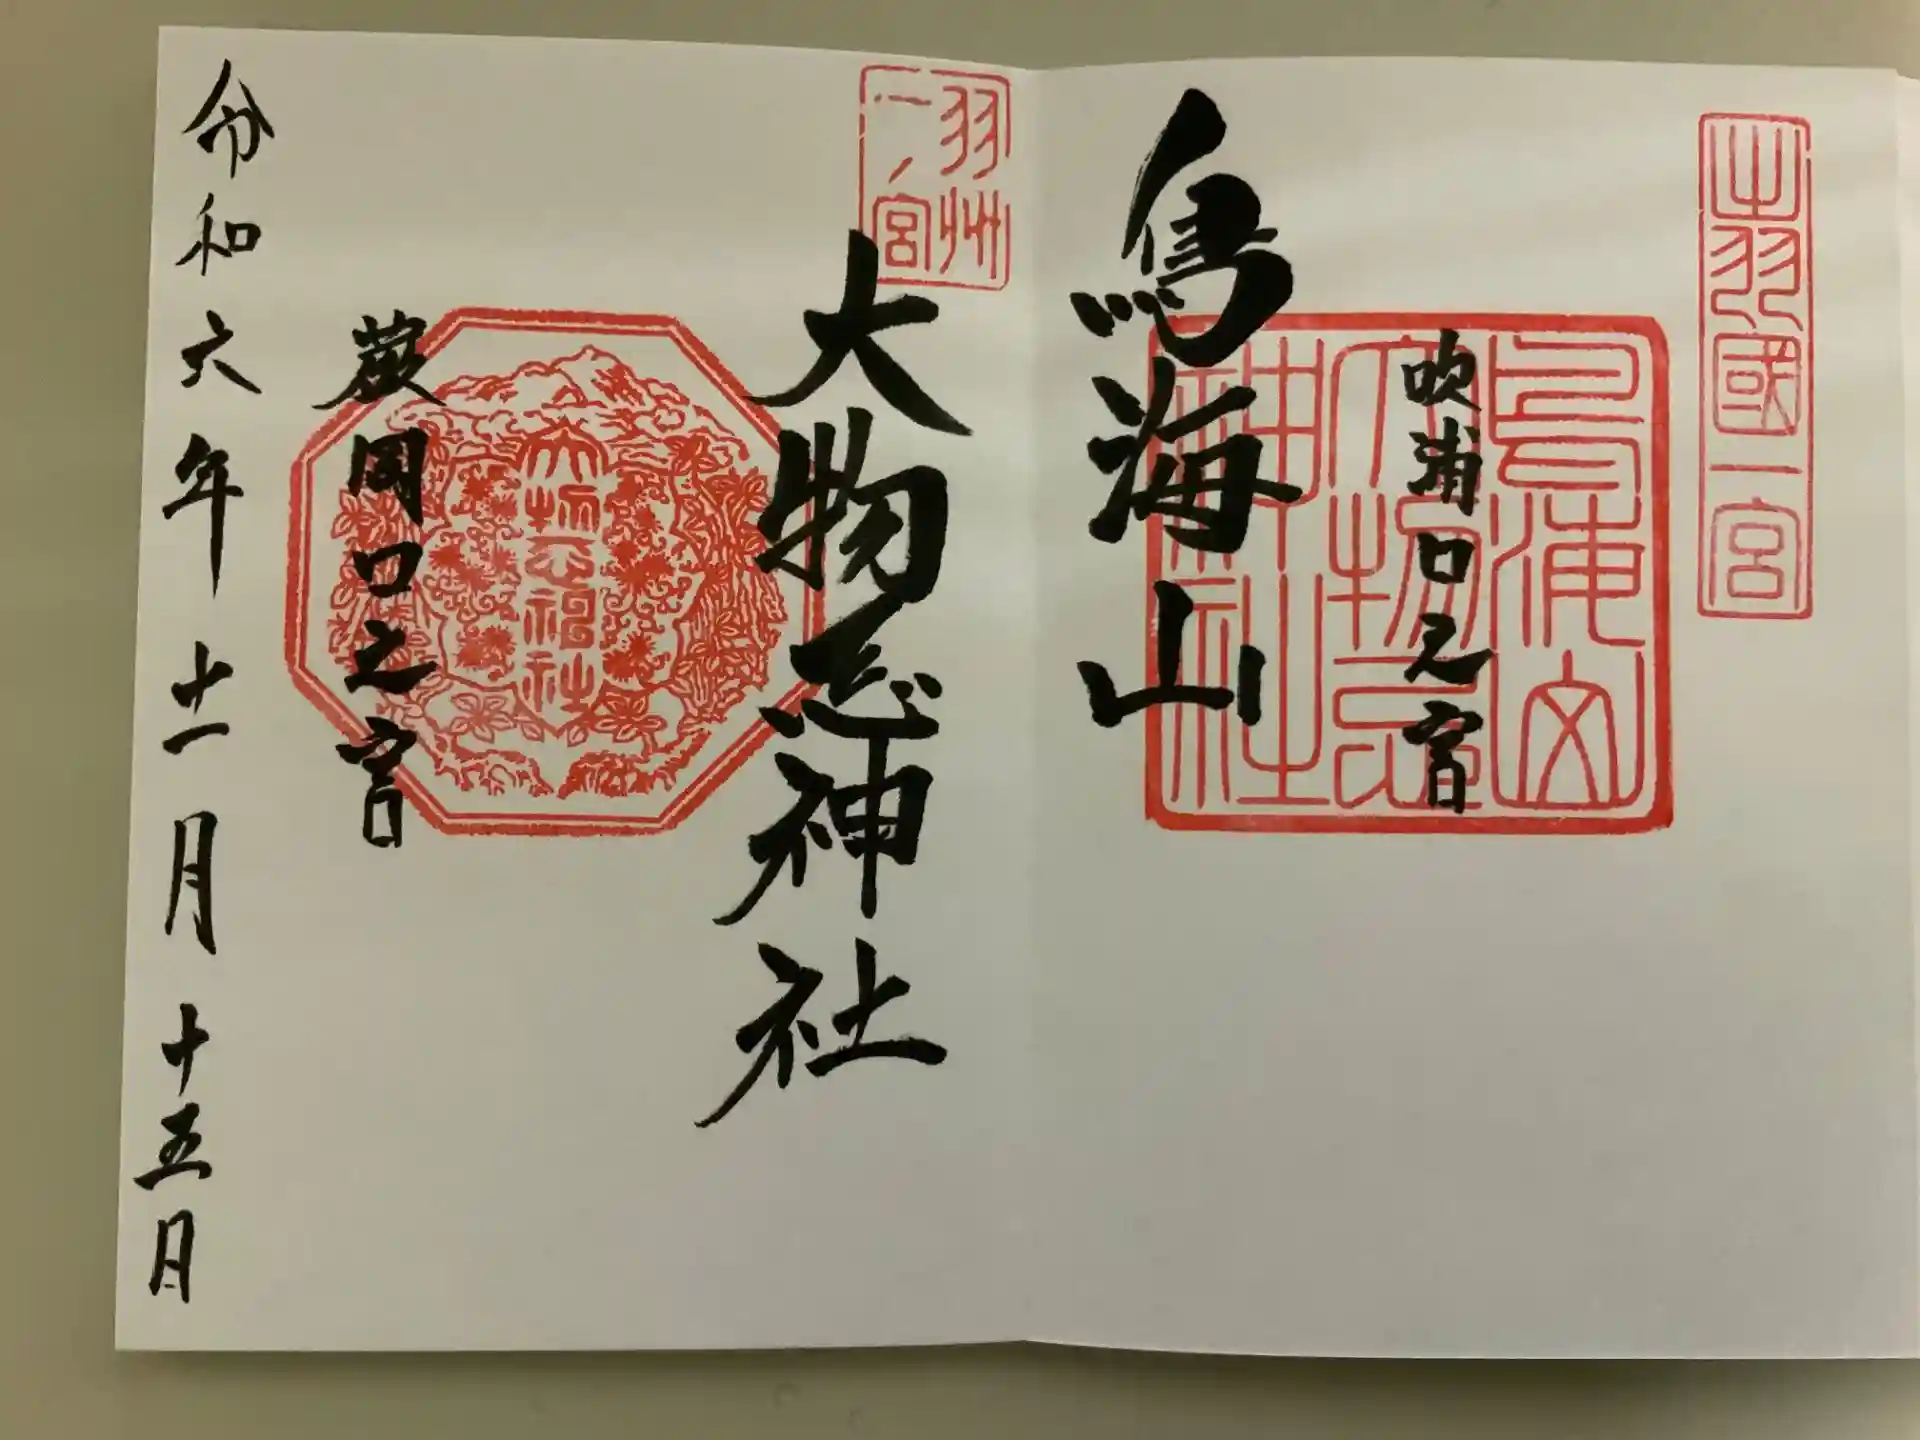 出羽國一宮
吹浦口之宮
鳥海山大物忌神社
鳥海山
羽州
一ノ宮
大物忌神社
大物忌神社
蕨岡口之宮
令和六年十一月十五日